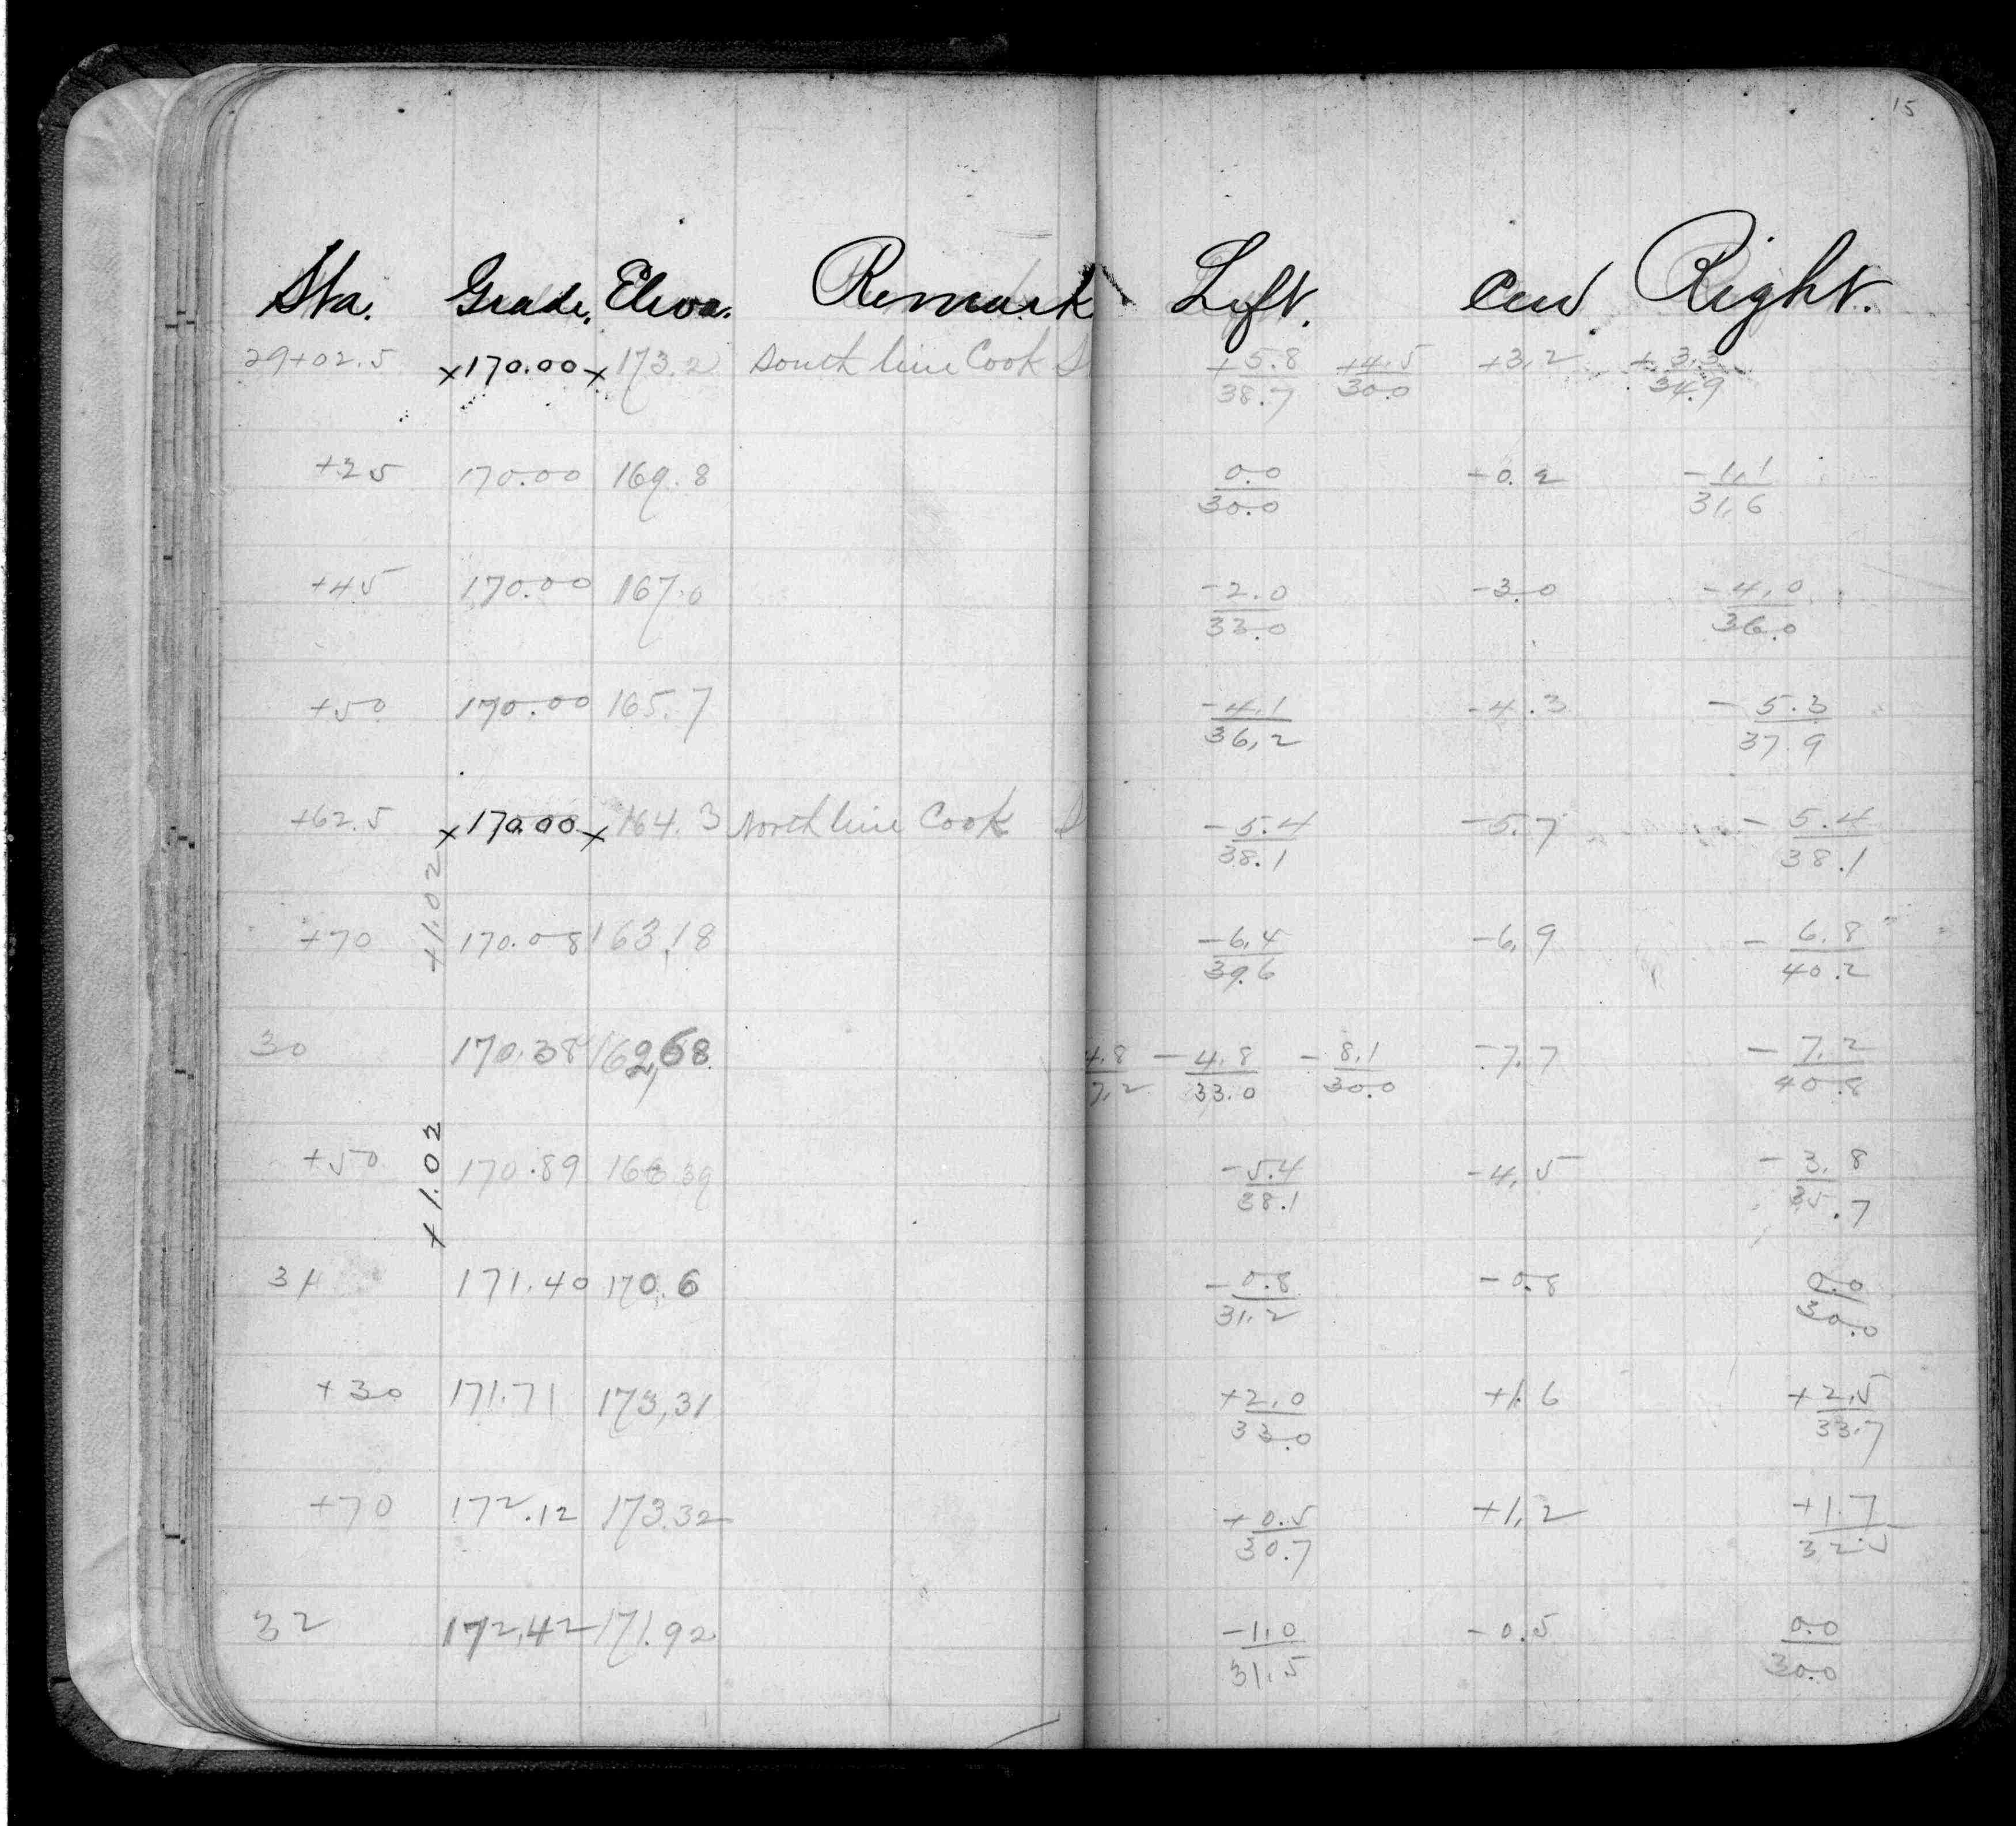 15
Sta. Grade. Eleva. Remark Left. Cen. Right.
29+02.5 x170.00x 173.2 South line Cook S +5.8/38.7 +4.5/30.0 +3.2 +3.3/34.9
+25 170.00 169.8 0.0/30.0 -0.2 -1.1/31.6
+45 170.00 167.0 -2.0/33.0 -3.0 -4.0/36.0
+50 170.00 165.7 -4.1/36.2 -4.3 -5.3/37.9
+62.5 x170.00x 164.3 North line Cook S -5.4/38.1 -5.7 -5.4/38.1
+1.02
+70 170.08 163.18 -6.4/39.6 -6.9 -6.8/40.2
30 170.38 162.68 4.8/7.2 -4.8/33.0 -8.1/30.0 -7.7 -7.2/40.8
+1.02
+50 170.89 166.39 -5.4/38.1 -4.5 -3.8/35.7
31 171.40 170.6 -0.8/31.2 -0.8 0.0/30.0
+30 171.71 173.31 +2.0/33.0 +1.6 +2.5/33.7
+70 172.12 173.32 +0.5/30.7 +1.2 +1.7/32.5
32 172.42 171.92 -1.0/31.5 -0.5 0.0/30.0